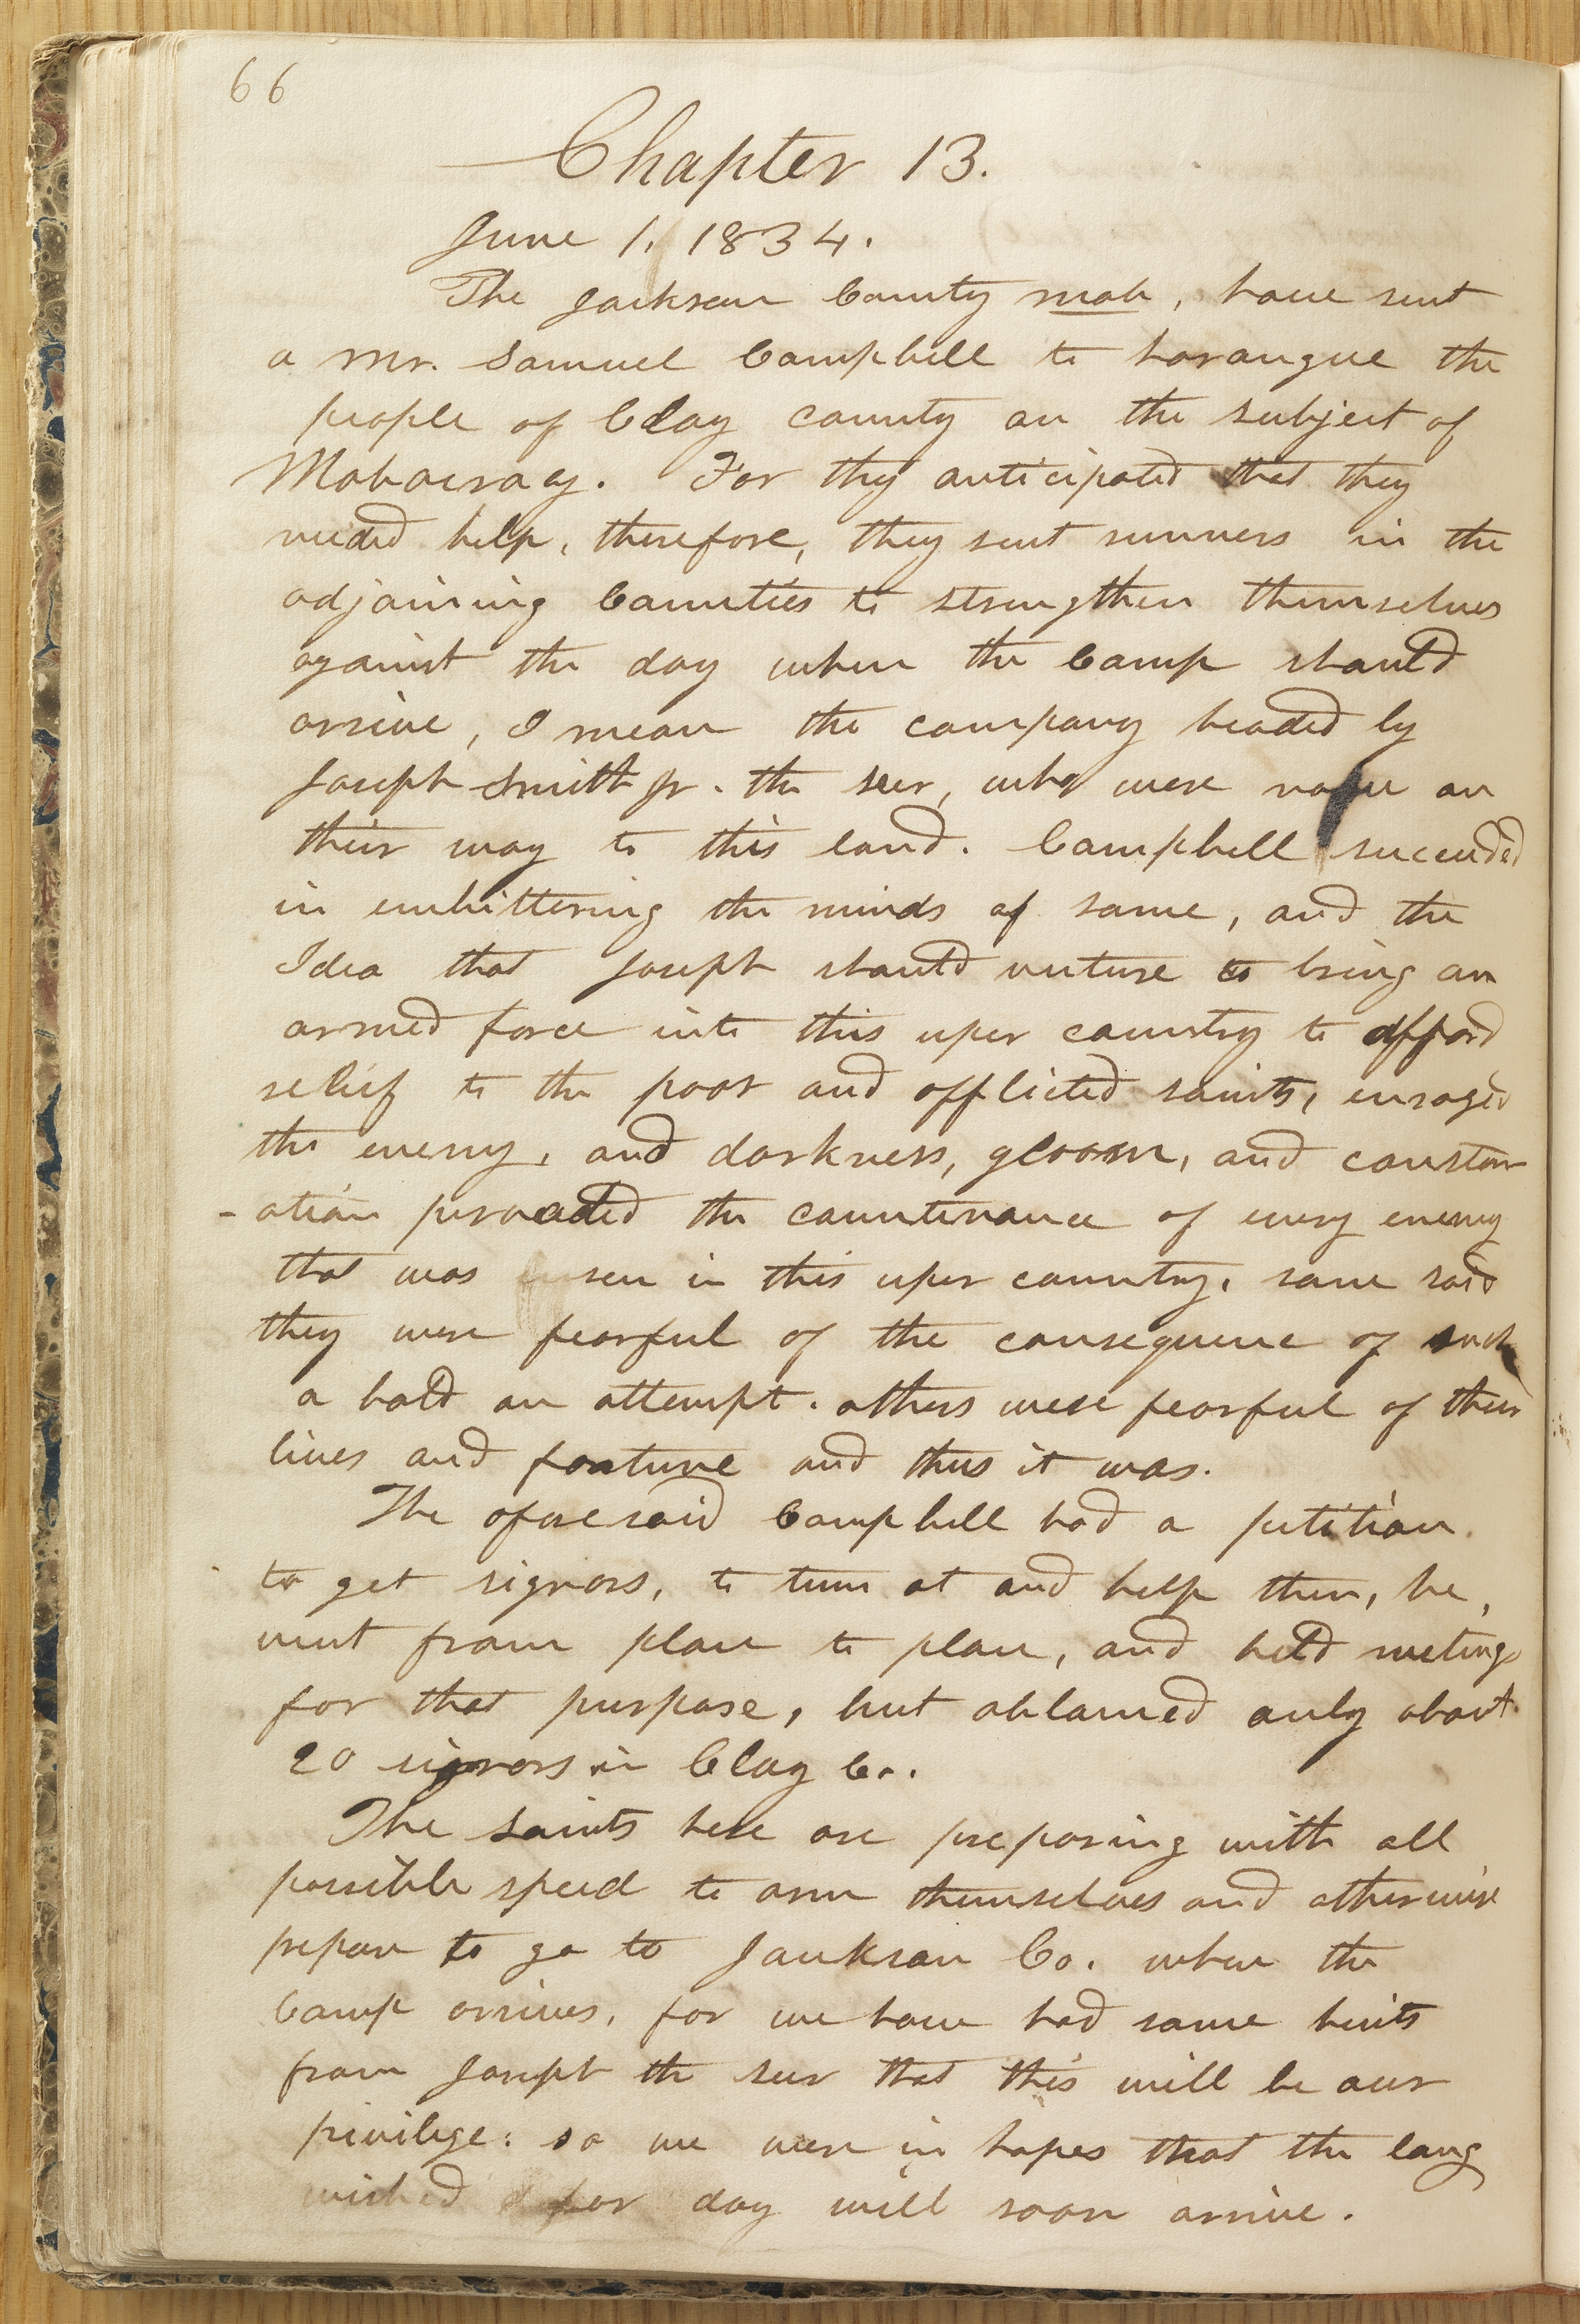 66
Chapter 13.
June 1, 1834.
The Jackson County mob, have sent
a Mr. Samuel Campbell to harangue the
people of Clay county on the subject of
Mobocracy. For they anticipated that they
needed help, therefore, they sent runners in the
adjoining Counties to strengthen themselves
against the day when the Camp should
arrive, I mean the company headed by
Joseph Smith jr. the seer, who were now on
their way to this land. Campbell succeeded
in embittering the minds of some, and the
Idea that Joseph should venture to bring an
armed force into this uper country to afford
relief to the poor and afflicted saints, enraged
the enemy, and darkness, gloom, and constern
-ation pervaded the countenance of every enemy
that was seen in this uper country. some said
they were fearful of the consequence of such
a bold an attempt. others were fearful of their
lives and foartune and thus it was.
The aforesaid Campbell had a petition
to get signors, to turn ot and help them, he,
went from place to place, and held meetings
for that purpose, but obtained only about
20 signors in Clay Co.
The saints here are preparing with all
possible speed to arm themselves and otherwise
prepare to go to Jackson Co. when the
Camp arrives, for we have had some hints
from Joseph the seer that this will be our
privilege: so we were in hopes that the long
wished for day will soon arrive.